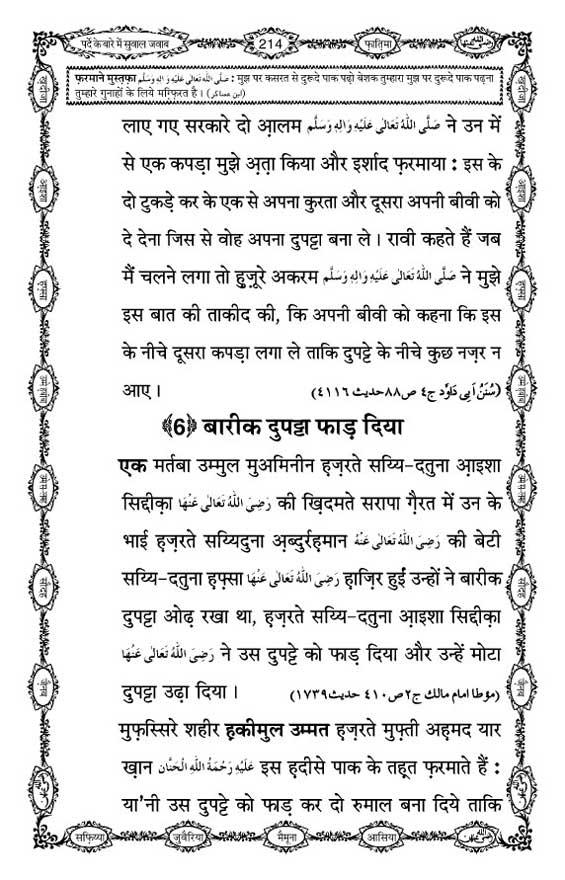 पर्दे के बारे में सुवाल जवाब
214
फ़ातिमा
फ़रमाने मुस्तफ़ा صَلَّى اللهُ تَعَالٰى عَلَيْهِ وَاٰلِهٖ وَسَلَّم : मुझ पर कसरत से दुरूदे पाक पढ़ो बेशक तुम्हारा मुझ पर दुरूदे पाक पढ़ना
तुम्हारे गुनाहों के लिये मग़्फ़िरत है । (ابن عساکر)
लाए गए सरकारे दो आ़लम صَلَّى اللهُ تَعَالٰى عَلَيْهِ وَاٰلِهٖ وَسَلَّم ने उन में
से एक कपड़ा मुझे अ़त़ा किया और इर्शाद फ़रमाया : इस के
दो टुकड़े कर के एक से अपना कुरता और दूसरा अपनी बीवी को
दे देना जिस से वोह अपना दुपट्टा बना ले । रावी कहते हैं जब
मैं चलने लगा तो हुज़ूरे अकरम صَلَّى اللهُ تَعَالٰى عَلَيْهِ وَاٰلِهٖ وَسَلَّم ने मुझे
इस बात की ताकीद की, कि अपनी बीवी को कहना कि इस
के नीचे दूसरा कपड़ा लगा ले ताकि दुपट्टे के नीचे कुछ नज़र न
आए । (سُنَنُ اَبِی دَاوٗد ج٤ ص٨٨ حدیث ٤١١٦)
﴾6﴿ बारीक दुपट्टा फाड़ दिया
एक मर्तबा उम्मुल मुअमिनीन ह़ज़रते सय्यि-दतुना आ़इशा
सिद्दीक़ा رَضِىَ اللهُ تَعَالٰى عَنْهَا की ख़िदमते सरापा ग़ैरत में उन के
भाई ह़ज़रते सय्यिदुना अ़ब्दुर्रह़मान رَضِىَ اللهُ تَعَالٰى عَنْهُ की बेटी
सय्यि-दतुना ह़फ़्सा رَضِىَ اللهُ تَعَالٰى عَنْهَا ह़ाज़िर हुईं उन्हों ने बारीक
दुपट्टा ओढ़ रखा था, ह़ज़रते सय्यि-दतुना आ़इशा सिद्दीक़ा
رَضِىَ اللهُ تَعَالٰى عَنْهَا ने उस दुपट्टे को फाड़ दिया और उन्हें मोटा
दुपट्टा उढ़ा दिया । (موطا امام مالک ج٢ ص٤١٠ حدیث ١٧٣٩)
मुफ़स्सिरे शहीर ह़कीमुल उम्मत ह़ज़रते मुफ़्ती अह़मद यार
ख़ान عَلَيْهِ رَحْمَةُ اللهِ الْحَنَّان इस ह़दीसे पाक के तह़्त फ़रमाते हैं :
या'नी उस दुपट्टे को फाड़ कर दो रुमाल बना दिये ताकि
सफ़िय्या
जुवैरिया
मैमूना
आसिया